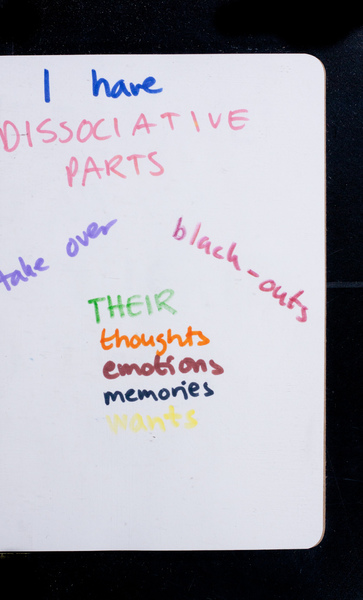 I have
DISSOCIATIVE
PARTS
take over
black-outs
THEIR
thoughts
emotions
memories
wants